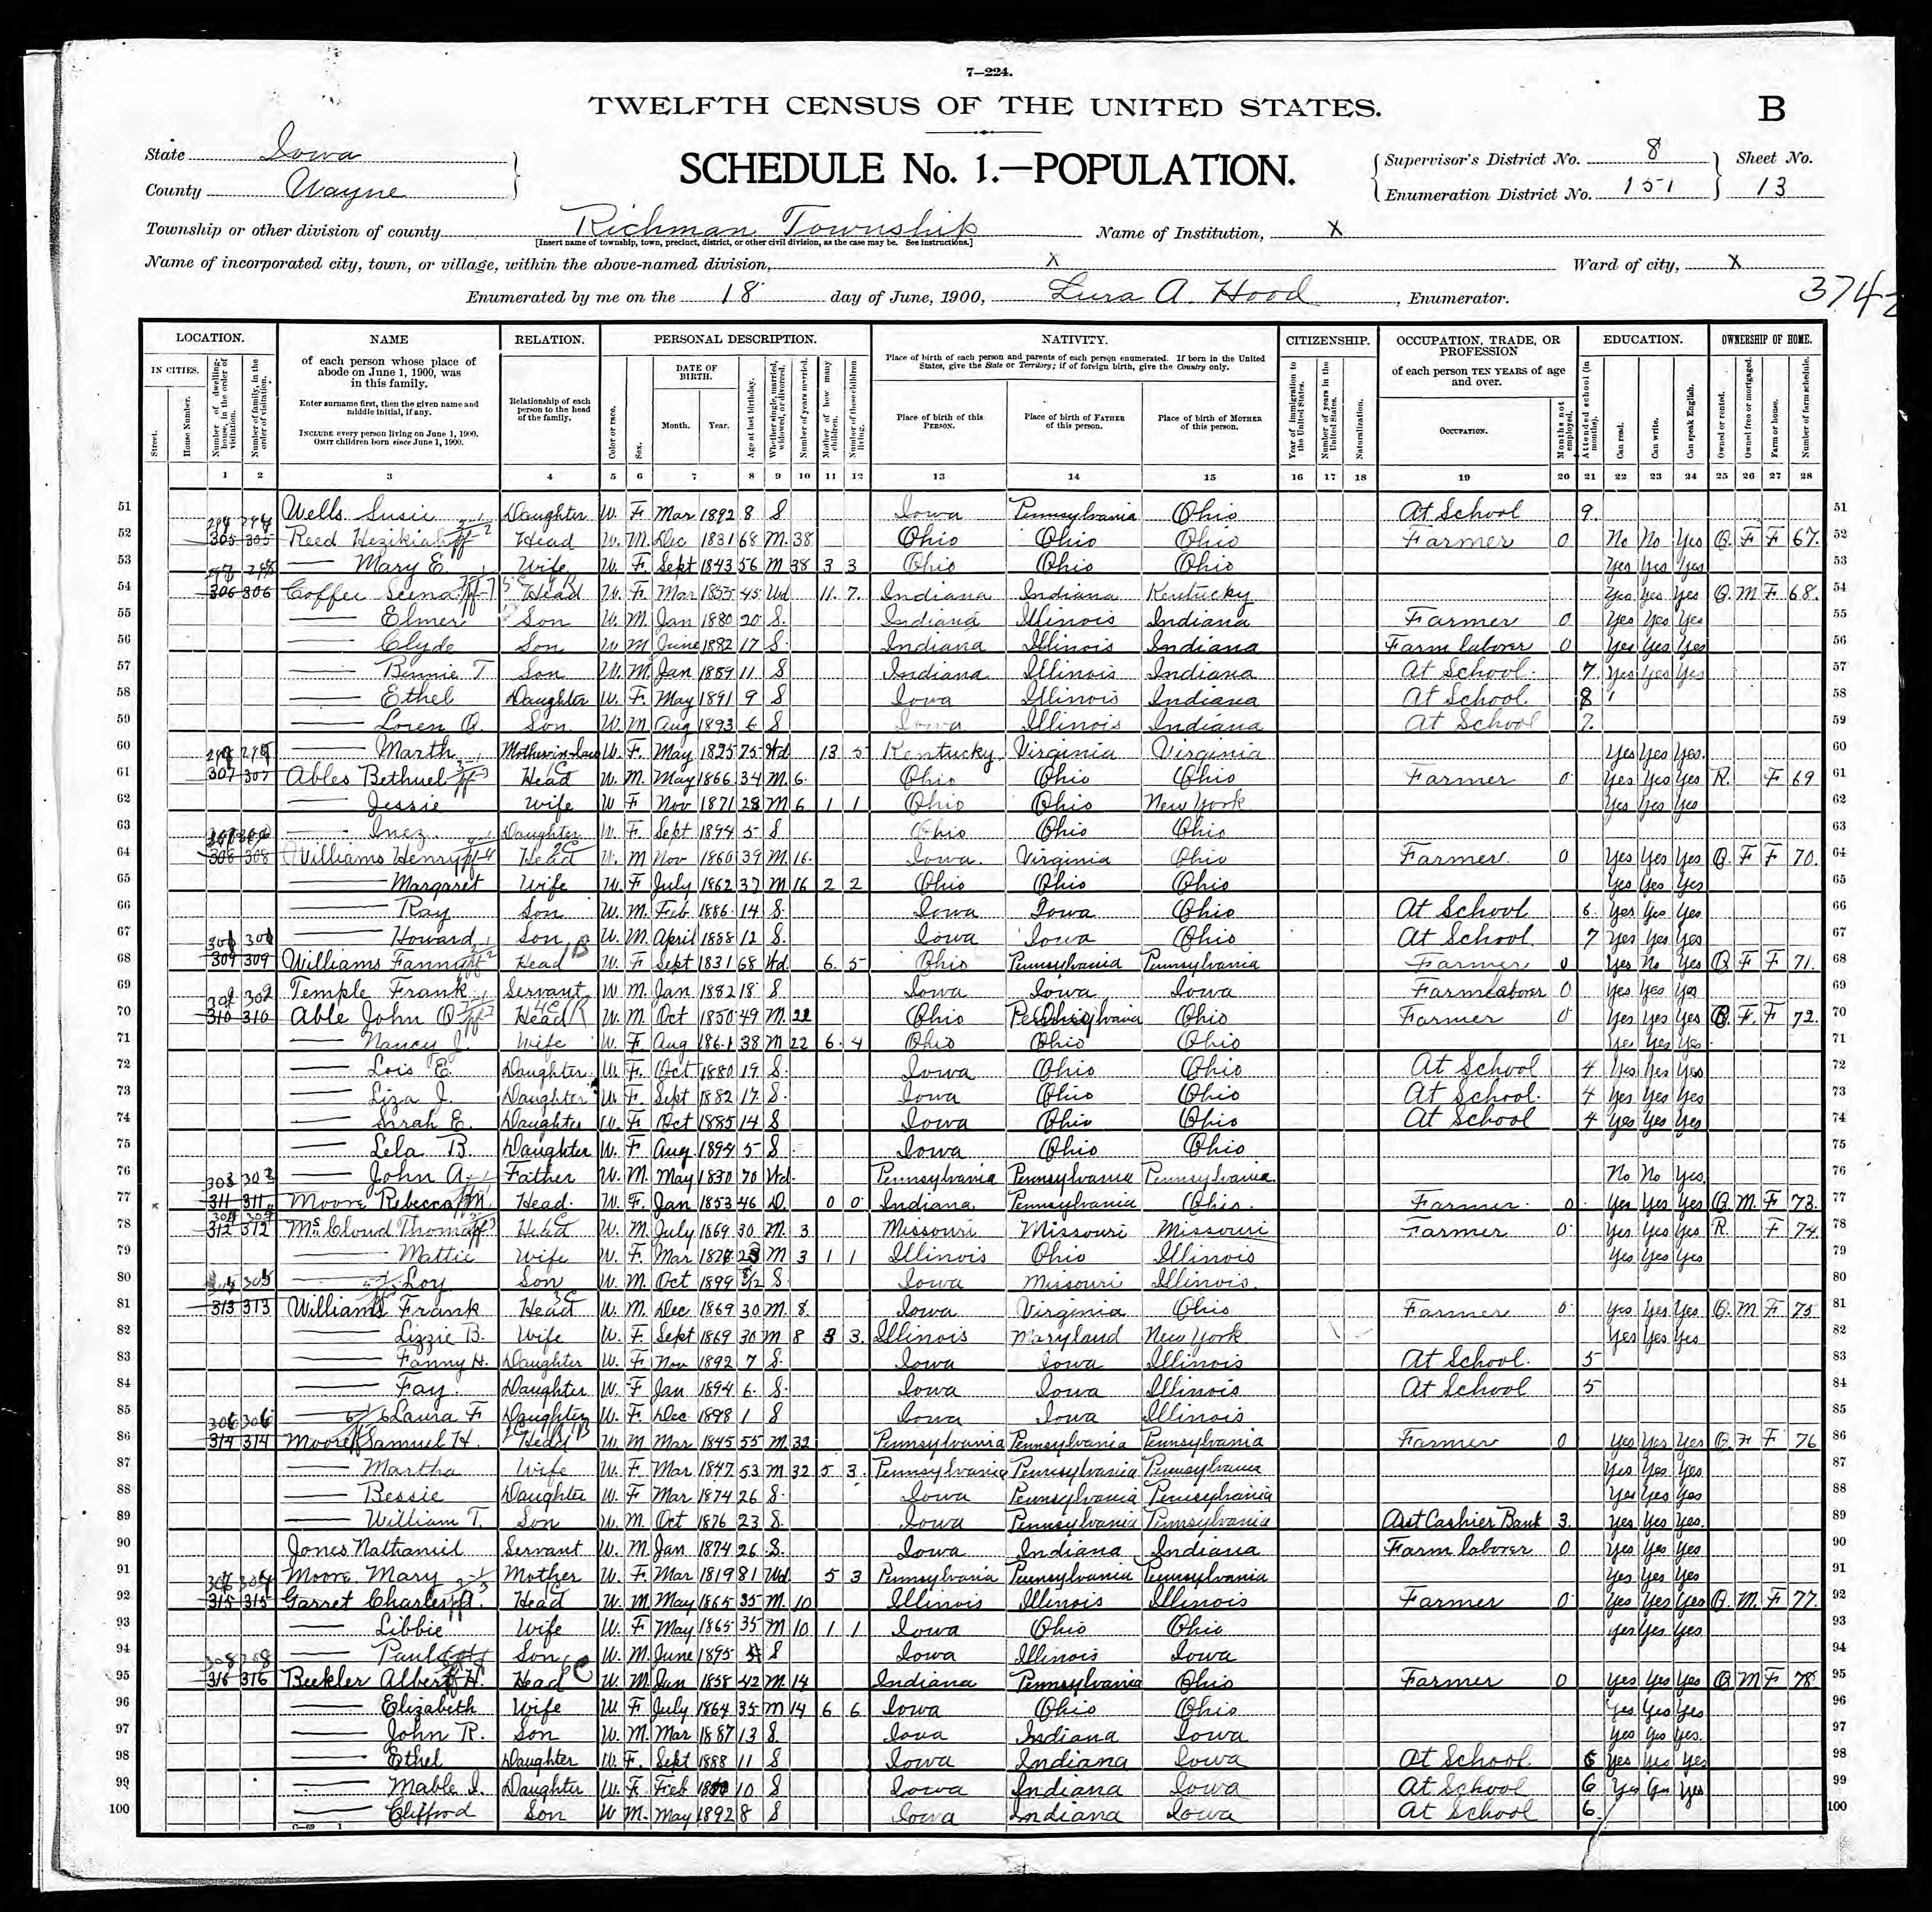 7—224.
TWELFTH CENSUS OF THE UNITED STATES.
B
State Iowa
County Wayne
SCHEDULE No. 1.—POPULATION.
Supervisor's District No. 8
Enumeration District No. 151
Sheet No.
13
Township or other division of county Richman Township
[Insert name of township, town, precinct, district, or other civil division, as the case may be. See instructions.]
Name of Institution, X
Name of incorporated city, town, or village, within the above-named division, X
Ward of city, X
Enumerated by me on the 18 day of June, 1900, Lura A. Hood, Enumerator.
LOCATION.
IN CITIES.
Street.
House Number.
Number of dwelling-house, in the order of visitation.
Number of family, in the order of visitation.
NAME
of each person whose place of abode on June 1, 1900, was in this family.
Enter surname first, then the given name and middle initial, if any.
INCLUDE every person living on June 1, 1900.
OMIT children born since June 1, 1900.
RELATION.
Relationship of each person to the head of the family.
PERSONAL DESCRIPTION.
Color or race.
Sex.
DATE OF BIRTH.
Month.
Year.
Age at last birthday.
Whether single, married, widowed, or divorced.
Number of years married.
Mother of how many children.
Number of these children living.
NATIVITY.
Place of birth of each person and parents of each person enumerated. If born in the United States, give the State or Territory; if of foreign birth, give the Country only.
Place of birth of this PERSON.
Place of birth of FATHER of this person.
Place of birth of MOTHER of this person.
CITIZENSHIP.
Year of immigration to the United States.
Number of years in the United States.
Naturalization.
OCCUPATION, TRADE, OR PROFESSION
of each person TEN YEARS of age and over.
OCCUPATION.
Months not employed.
EDUCATION.
Attended school (in months).
Can read.
Can write.
Can speak English.
OWNERSHIP OF HOME.
Owned or rented.
Owned free or mortgaged.
Farm or house.
Number of farm schedule.
1 2 3 4 5 6 7 8 9 10 11 12 13 14 15 16 17 18 19 20 21 22 23 24 25 26 27 28
51 Wells Susie Daughter W. F Mar 1892 8 S Iowa Pennsylvania Ohio At School 9 51
52 305 305 Reed Hezikiah Head W. M. Dec 1831 68 M. 38 Ohio Ohio Ohio Farmer 0 No No Yes O. F F 67. 52
53 — Mary E. Wife W. F. Sept 1843 56 M 38 3 3 Ohio Ohio Ohio Yes Yes Yes 53
54 306 306 Coffee Head W. F Mar 1855 45 Wd 11. 7. Indiana Indiana Kentucky Yes Yes Yes O. M F 68. 54
55 — Elmer Son W. M. Jan 1880 20 S. Indiana Illinois Indiana Farmer 0 Yes Yes Yes 55
56 — Clyde Son W M June 1882 17 S. Indiana Illinois Indiana Farm laborer 0 Yes Yes Yes 56
57 — Bennie T. Son W. M. Jan 1889 11 S Indiana Illinois Indiana At School. 7. Yes Yes Yes 57
58 — Ethel Daughter W. F. May 1891 9 S Iowa Illinois Indiana At School. 8 58
59 — Loren O. Son W. M Aug 1893 6 S Iowa Illinois Indiana At School 7. 59
60 — Marth Mother in Law W. F. May 1825 75 Wd 13 5 Kentucky Virginia Virginia Yes Yes Yes. 60
61 307 307 Ables Bethuel Head W. M. May 1866 34 M. 6. Ohio Ohio Ohio Farmer 0 Yes Yes Yes R. F 69 61
62 — Jessie Wife W F Nov 1871 28 M 6 1 1 Ohio Ohio New York Yes Yes Yes 62
63 — Inez Daughter W. F. Sept 1894 5 S Ohio Ohio Ohio 63
64 308 308 Williams Henry Head W. M Nov 1860 39 M. 16. Iowa. Virginia Ohio Farmer. 0 Yes Yes Yes O. F F 70. 64
65 — Margaret Wife W. F July 1862 37 M 16 2 2 Ohio Ohio Ohio Yes Yes Yes 65
66 — Ray Son W. M. Feb 1886 14 S. Iowa Iowa Ohio At School 6. Yes Yes Yes 66
67 — Howard Son W. M. April 1888 12 S. Iowa Iowa Ohio At School. 7 Yes Yes Yes 67
68 309 309 Williams Fanny Head W. F Sept 1831 68 Wd. 6. 5 Ohio Pennsylvania Pennsylvania Farmer 0 Yes No Yes O F F 71. 68
69 Temple Frank Servant W M. Jan 1882 18 S Iowa Iowa Iowa Farm laborer 0 Yes Yes Yes 69
70 310 310 Able John O Head W. M. Oct 1850 49 M. 22 Ohio Pennsylvania Ohio Farmer 0 Yes Yes Yes O. F. F 72. 70
71 — Nancy J. Wife W. F. Aug 1861 38 M 22 6. 4 Ohio Ohio Ohio Yes Yes Yes 71
72 — Lois E. Daughter W. F. Oct 1880 19 S. Iowa Ohio Ohio At School 4 Yes Yes Yes 72
73 — Liza J. Daughter W. F. Sept 1882 17. S. Iowa Ohio Ohio At School. 4 Yes Yes Yes 73
74 — Sarah E. Daughter W. F Oct 1885 14 S Iowa Ohio Ohio At School 4 Yes Yes Yes 74
75 — Lela B. Daughter W. F Aug. 1894 5 S Iowa Ohio Ohio 75
76 — John A. Father W. M. May 1830 70 Wd. Pennsylvania Pennsylvania Pennsylvania. No No Yes. 76
77 311 311 Moore Rebecca Head. W. F. Jan 1853 46 D. 0 0 Indiana Pennsylvania Ohio. Farmer 0 Yes Yes Yes O. M. F 73. 77
78 312 312 McCloud Thomas Head W. M. July 1869 30 M. 3 Missouri Missouri Missouri Farmer 0 Yes Yes Yes R. F 74. 78
79 — Mattie Wife W. F. Mar 23 M 3 1 1 Illinois Ohio Illinois Yes Yes Yes 79
80 — Loy Son W. M. Oct 1899 8/12 S Iowa Missouri Illinois. 80
81 313 313 Williams Frank Head W. M. Dec 1869 30 M. 8. Iowa Virginia Ohio Farmer 0 Yes Yes Yes O. M F 75. 81
82 — Lizzie B. Wife W. F. Sept 1869 30 M 8 3 3. Illinois Maryland New York Yes Yes Yes 82
83 — Fanny H. Daughter W. F. Nov 1892 7 S. Iowa Iowa Illinois At School. 5 83
84 — Fay. Daughter W. F Jan 1894 6. S. Iowa Iowa Illinois At School 5 84
85 — Laura F Daughter W. F. Dec 1898 1 S Iowa Iowa Illinois 85
86 314 314 Moore Samuel H. Head W. M Mar 1845 55 M. 32 Pennsylvania Pennsylvania Pennsylvania Farmer 0 Yes Yes Yes O F F 76 86
87 — Martha Wife W. F. Mar 1847 53 M 32 5 3. Pennsylvania Pennsylvania Pennsylvania Yes Yes Yes 87
88 — Bessie Daughter W. F Mar 1874 26 S. Iowa Pennsylvania Pennsylvania Yes Yes Yes 88
89 — William T. Son W. M. Oct 1876 23 S. Iowa Pennsylvania Pennsylvania Ast Cashier Bank 3. Yes Yes Yes. 89
90 Jones Nathaniel Servant W. M. Jan 1874 26 S. Iowa Indiana Indiana Farm laborer 0 Yes Yes Yes 90
91 Moore Mary Mother W. F. Mar 1819 81 Wd 5 3 Pennsylvania Pennsylvania Pennsylvania Yes Yes Yes 91
92 315 315 Garret Charles Head W. M. May 1865 35 M. 10 Illinois Illinois Illinois Farmer 0 Yes Yes Yes O. M. F 77. 92
93 — Libbie Wife W. F May 1865 35 M 10 1 1 Iowa Ohio Ohio Yes Yes Yes 93
94 — Paul Son W. M. June 1895 S Iowa Illinois Iowa 94
95 316 316 Beekler Albert H. Head W. M. Jan 1858 42 M. 14 Indiana Pennsylvania Ohio Farmer 0 Yes Yes Yes O M F 78 95
96 — Elizabeth Wife W. F July 1864 35 M 14 6 6 Iowa Ohio Ohio Yes Yes Yes 96
97 — John R. Son W. M. Mar 1887 13 S. Iowa Indiana Iowa Yes Yes Yes. 97
98 — Ethel Daughter W. F. Sept 1888 11 S Iowa Indiana Iowa At School. 6 Yes Yes Yes 98
99 — Mable I. Daughter W. F. Feb 10 S Iowa Indiana Iowa At School 6 Yes Yes Yes 99
100 — Clifford Son W M. May 1892 8 S Iowa Indiana Iowa At School 6. 100